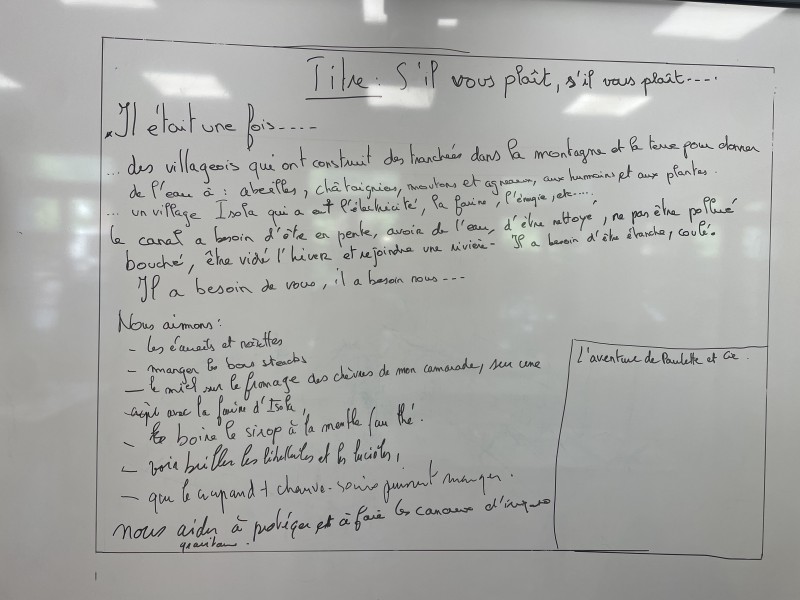 Titre : S'il vous plaît, s'il vous plaît....
Il était une fois....
... des villageois qui ont construit des tranchées dans la montagne et la terre pour donner
de l'eau à : abeilles, châtaigniers, moutons et agneaux, aux humains et aux plantes.
... un village Isola qui a eut l'électricité, la farine, l'énergie, etc....
le canal a besoin d'être en pente, avoir de l'eau, d'être nettoyé, ne pas être pollué
bouché, être vidé l'hiver et rejoindre une rivière - Il a besoin d'être étanche, coulé.
Il a besoin de vous, il a besoin nous ---
Nous aimons :
- les écureuils et noisettes
- manger les bons steacks
- le miel sur le fromage des chèvres de mon camarade, sur une
avec la farine d'Isola,
- boire le sirop à la menthe / au thé.
- voir briller les libellules et les lucioles,
- que le crapaud + chauve-souris puissent manger.
nous aider à protéger et à faire les canaux
L'aventure de Paulette et Cie.